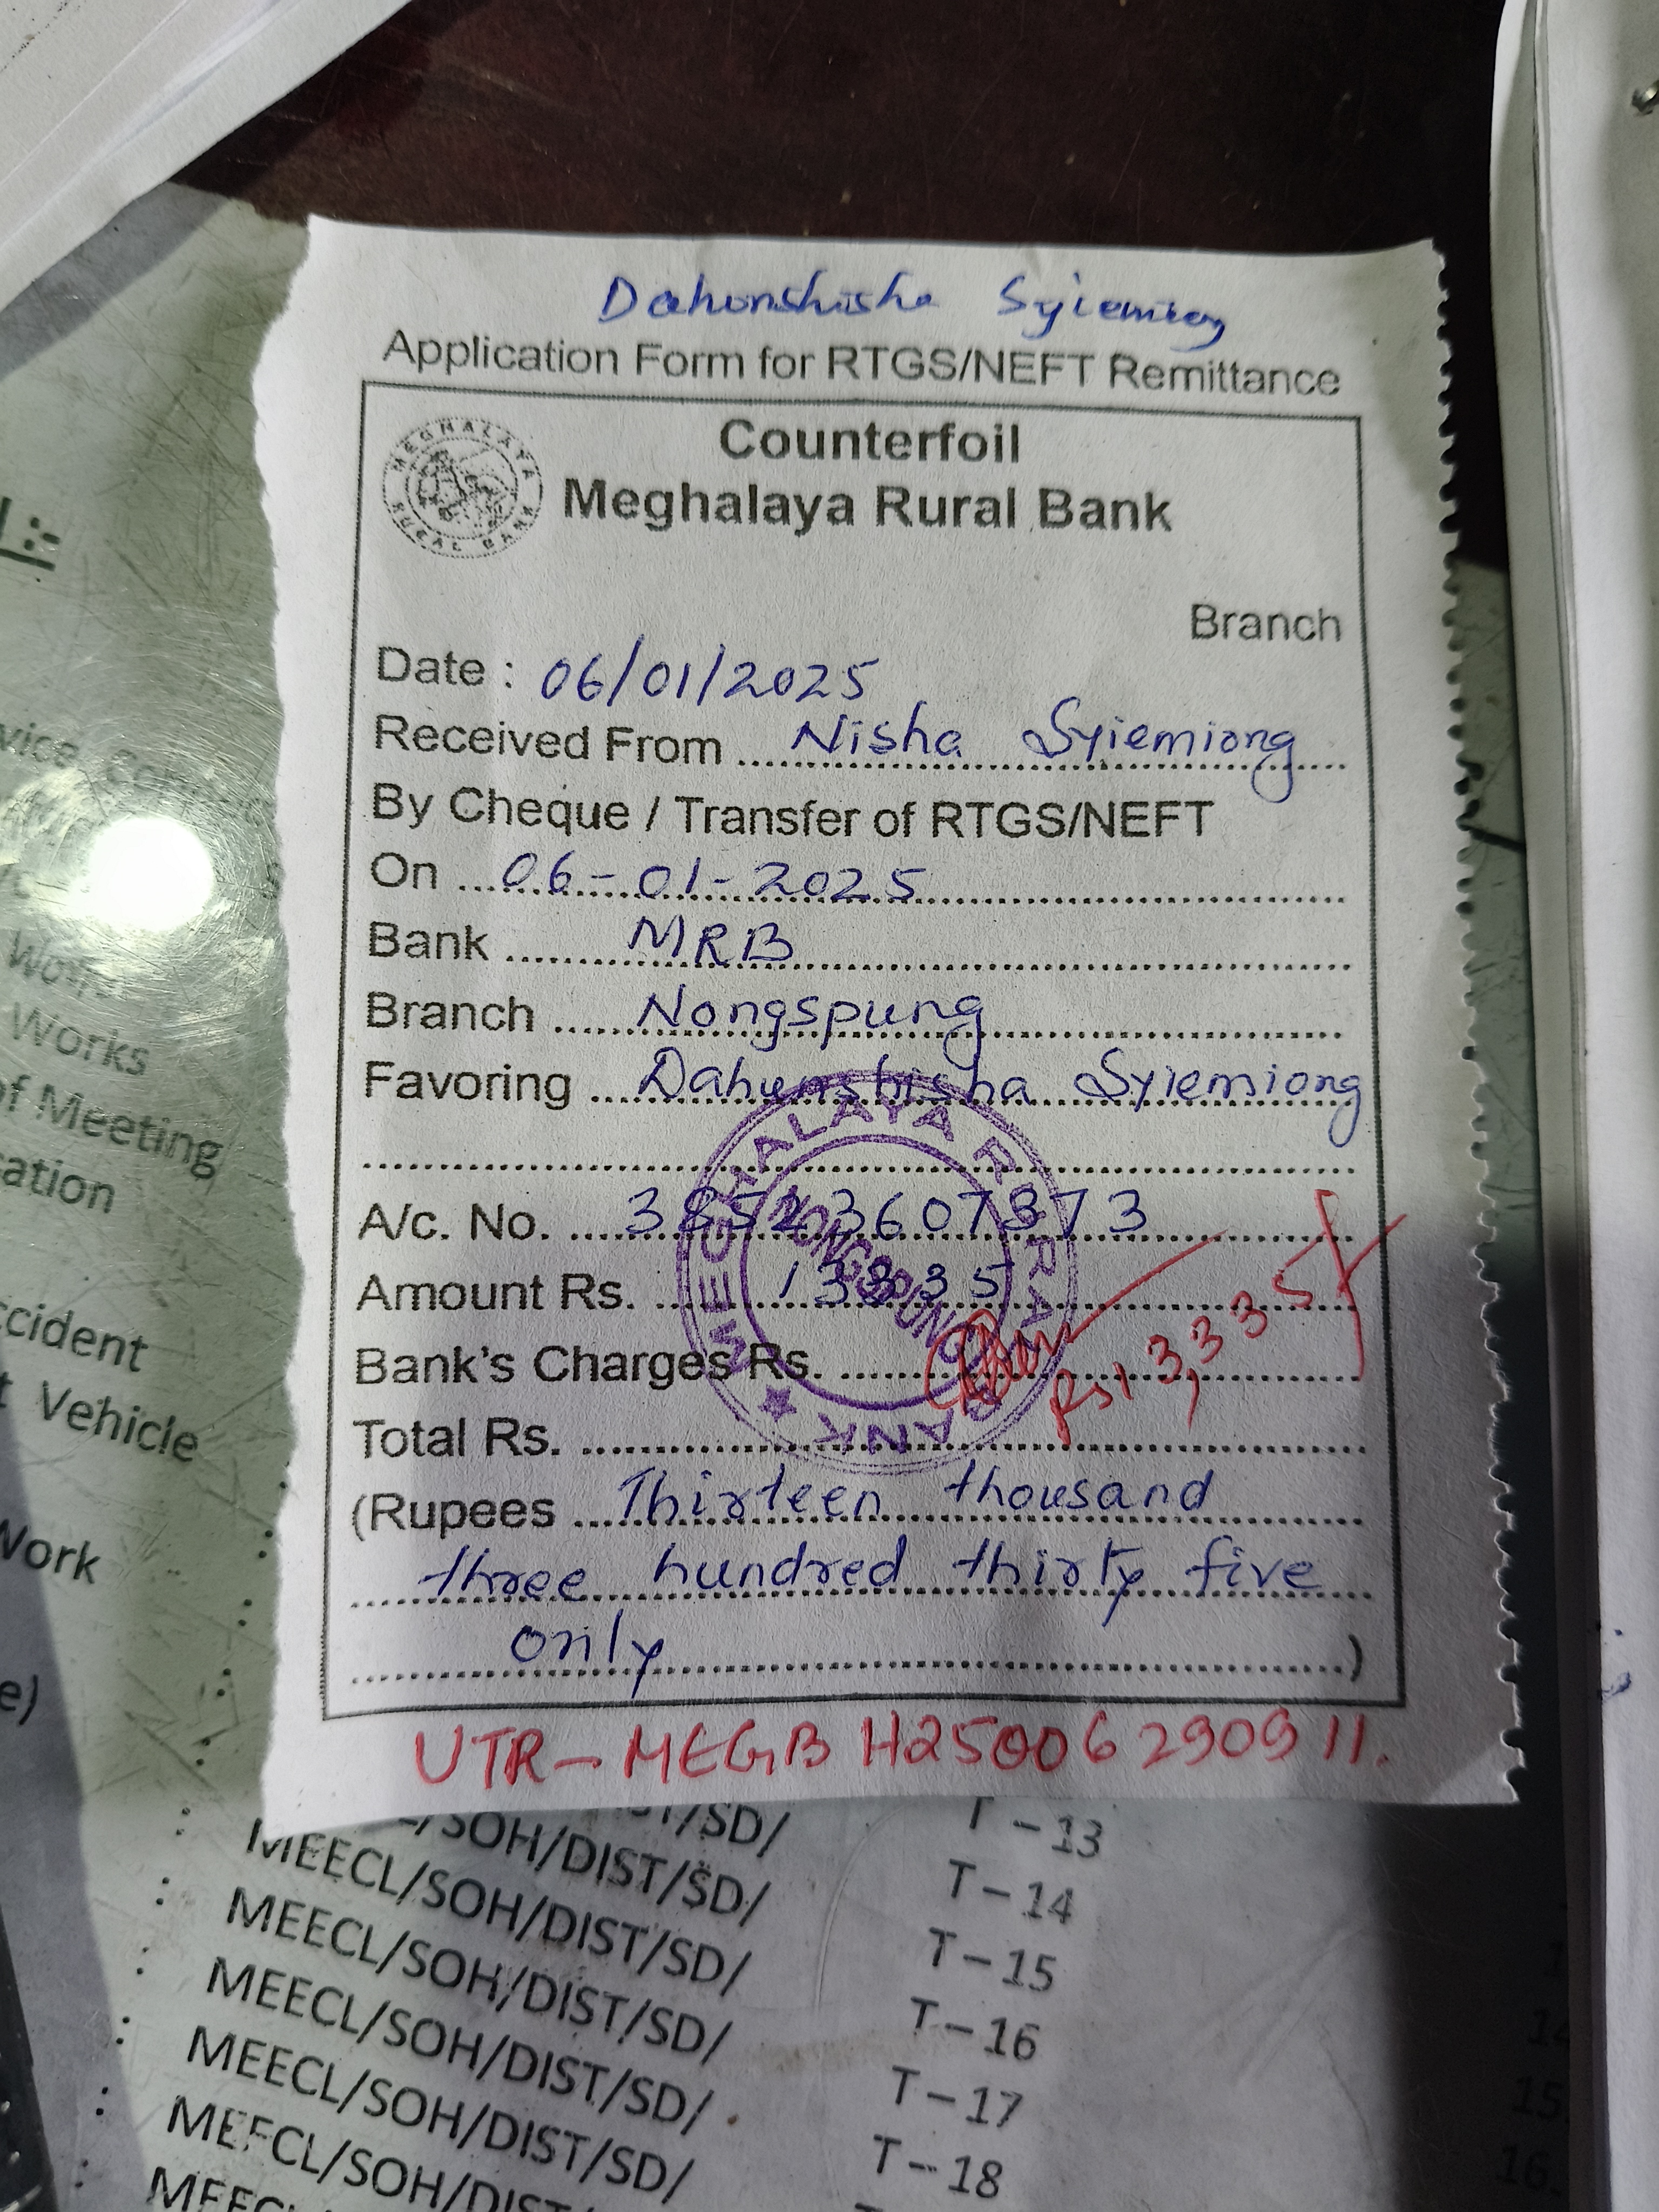 Dahunshisha Syiemiong
Application Form for RTGS/NEFT Remittance
Counterfoil
MEGHALAYA RURAL BANK
Meghalaya Rural Bank
Branch
Date : 06/01/2025
Received From Nisha Syiemiong
By Cheque / Transfer of RTGS/NEFT
On 06-01-2025
Bank MRB
Branch Nongspung
Favoring Dahunshisha Syiemiong
A/c. No. 38523607373
Amount Rs. 13335
Bank's Charges Rs.
Rs 13,335/
Total Rs.
(Rupees Thirteen thousand
three hundred thirty five
only )
MEGHALAYA RURAL BANK
NONGSPUNG
UTR-MEGB H25006290911.
Works
of Meeting
Vehicle
Work
/SD/ T-13
/SOH/DIST/SD/ T-14
MEECL/SOH/DIST/SD/ T-15
MEECL/SOH/DIST/SD/ T-16
MEECL/SOH/DIST/SD/ T-17
MEECL/SOH/DIST/SD/ T-18